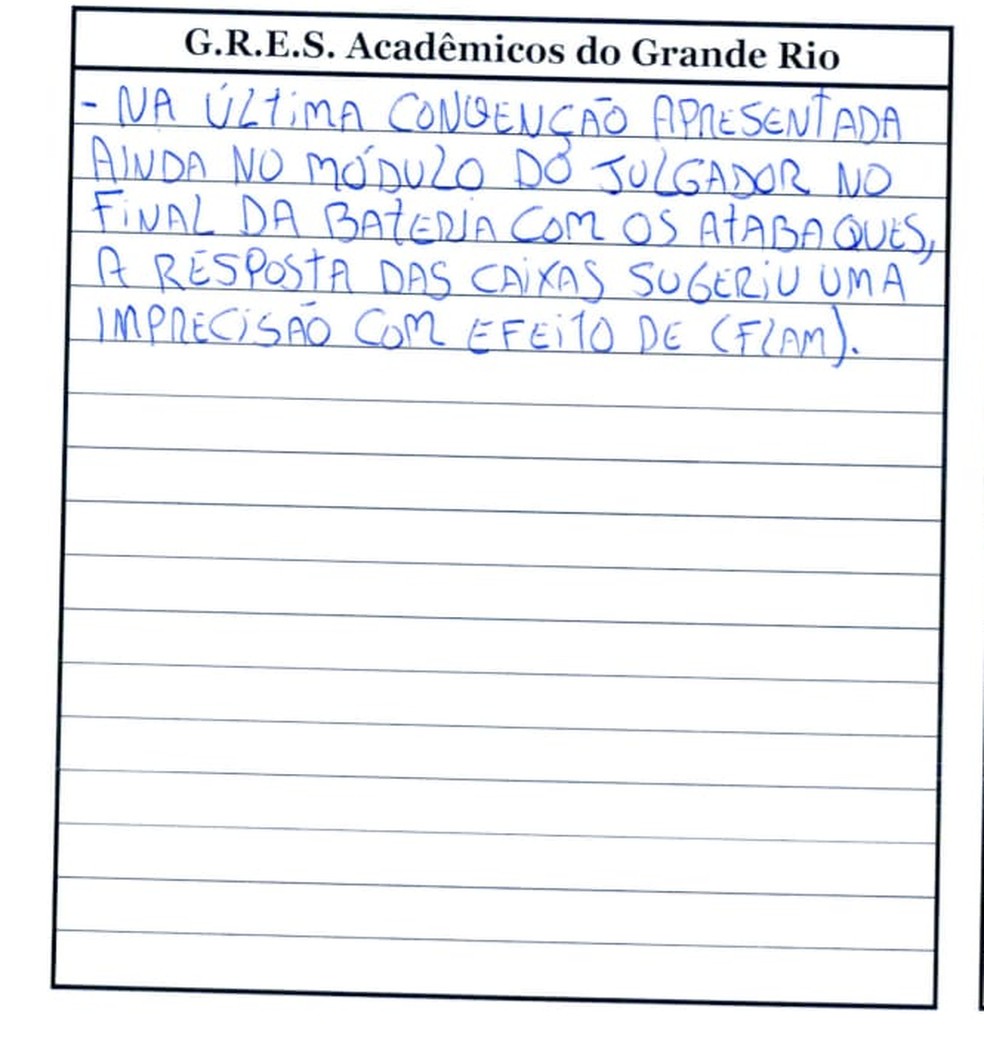 G.R.E.S. Acadêmicos do Grande Rio
- NA ÚLTIMA CONVENÇÃO APRESENTADA
AINDA NO MÓDULO DO JULGADOR NO
FINAL DA BATERIA COM OS ATABAQUES,
A RESPOSTA DAS CAIXAS SUGERIU UMA
IMPRECISÃO COM EFEITO DE (FLAM).